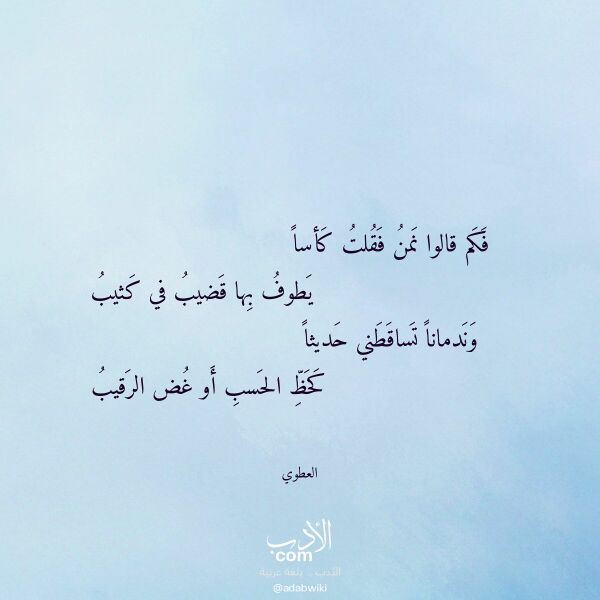 فَكَم قالوا نَمنُ فَقُلتُ كَأساً
يَطوفُ بِها قَضيبُ في كَثيبُ
وَنَدماناً تَساقَطَني حَديثاً
كَحَظِّ الحَسبِ أَو غُض الرَقيبُ
العطوي
الأدب
com
الأدب .. بلغة عربية
@adabwiki